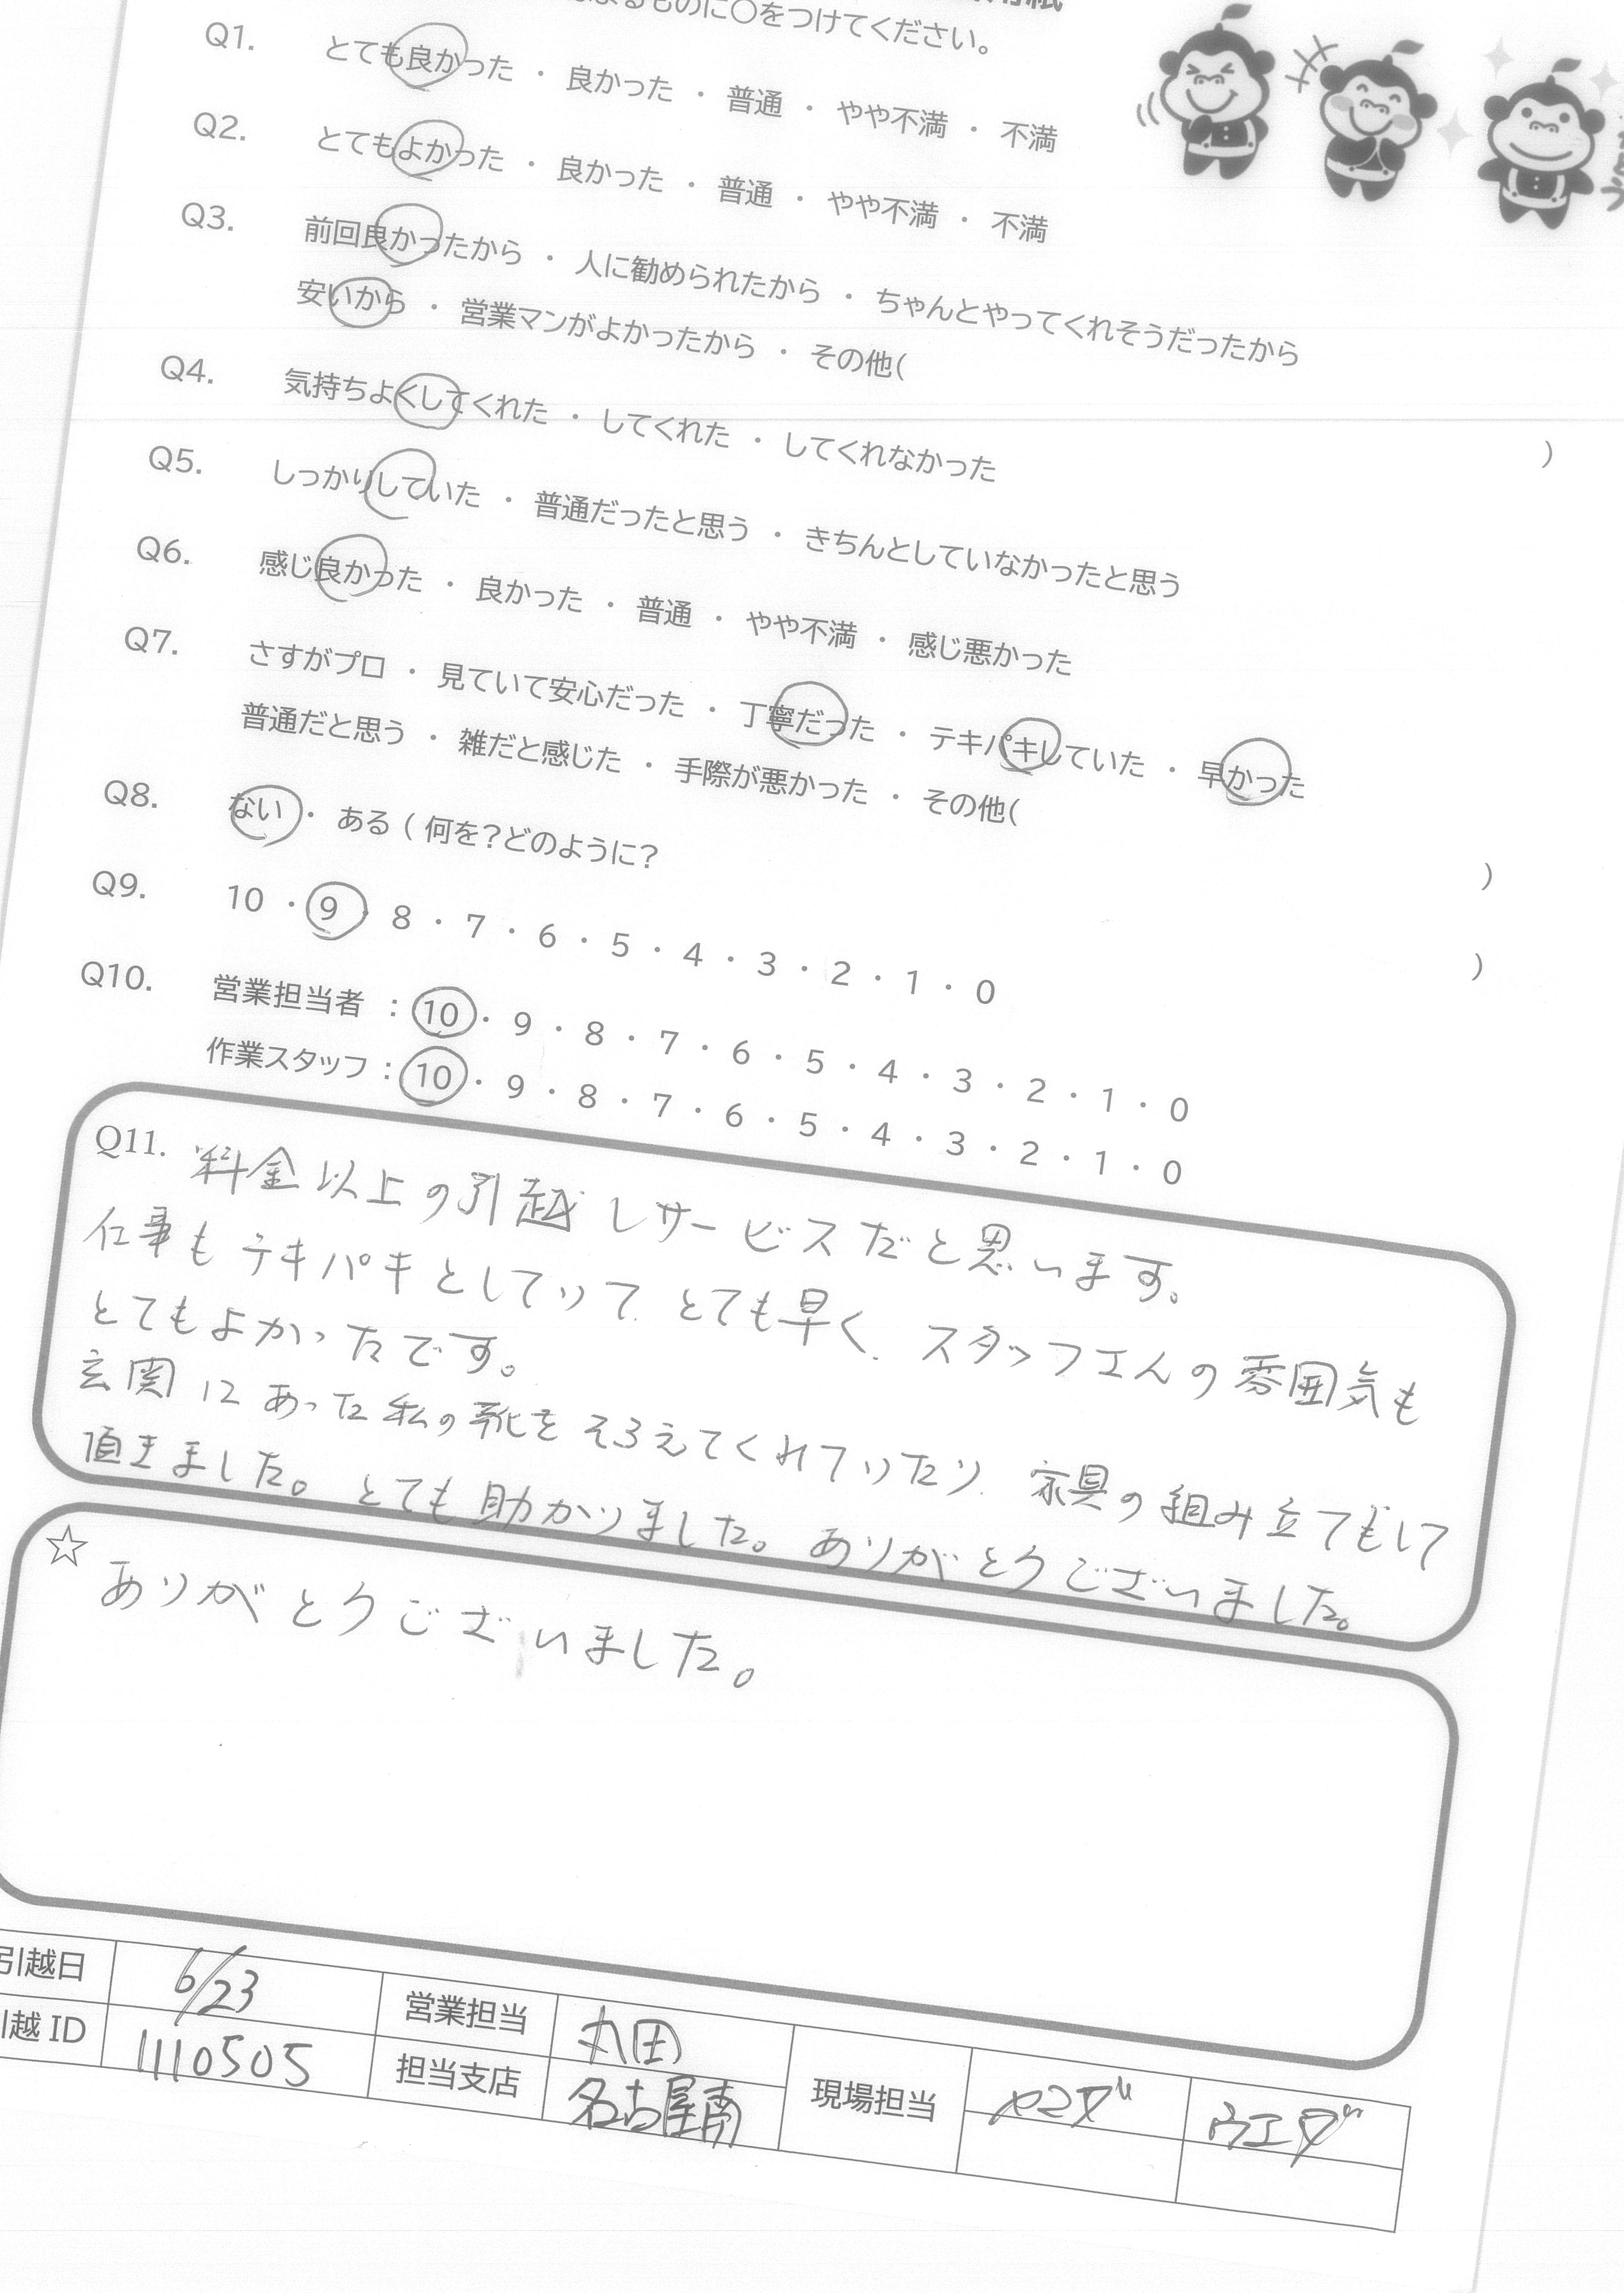 ものに〇をつけてください。
Q1. とても良かった ・ 良かった ・ 普通 ・ やや不満 ・ 不満
Q2. とてもよかった ・ 良かった ・ 普通 ・ やや不満 ・ 不満
Q3. 前回良かったから ・ 人に勧められたから ・ ちゃんとやってくれそうだったから
安いから ・ 営業マンがよかったから ・ その他( )
Q4. 気持ちよくしてくれた ・ してくれた ・ してくれなかった
Q5. しっかりしていた ・ 普通だったと思う ・ きちんとしていなかったと思う
Q6. 感じ良かった ・ 良かった ・ 普通 ・ やや不満 ・ 感じ悪かった
Q7. さすがプロ ・ 見ていて安心だった ・ 丁寧だった ・ テキパキしていた ・ 早かった
普通だと思う ・ 雑だと感じた ・ 手際が悪かった ・ その他( )
Q8. ない ・ ある ( 何を?どのように? )
Q9. 10 ・ 9 ・ 8 ・ 7 ・ 6 ・ 5 ・ 4 ・ 3 ・ 2 ・ 1 ・ 0
Q10. 営業担当者 : 10 ・ 9 ・ 8 ・ 7 ・ 6 ・ 5 ・ 4 ・ 3 ・ 2 ・ 1 ・ 0
作業スタッフ : 10 ・ 9 ・ 8 ・ 7 ・ 6 ・ 5 ・ 4 ・ 3 ・ 2 ・ 1 ・ 0
Q11. 料金以上の引越しサービスだと思います。
仕事もテキパキとしていて、とても早く、スタッフさんの雰囲気も
とてもよかったです。
玄関にあった私の靴をそろえてくれていたり、家具の組み立てもして
頂きました。とても助かりました。ありがとうございました。
☆ ありがとうございました。
引越日 6/23 営業担当 丸田 現場担当 ヤマダ ウエダ
越 ID 1110505 担当支店 名古屋南